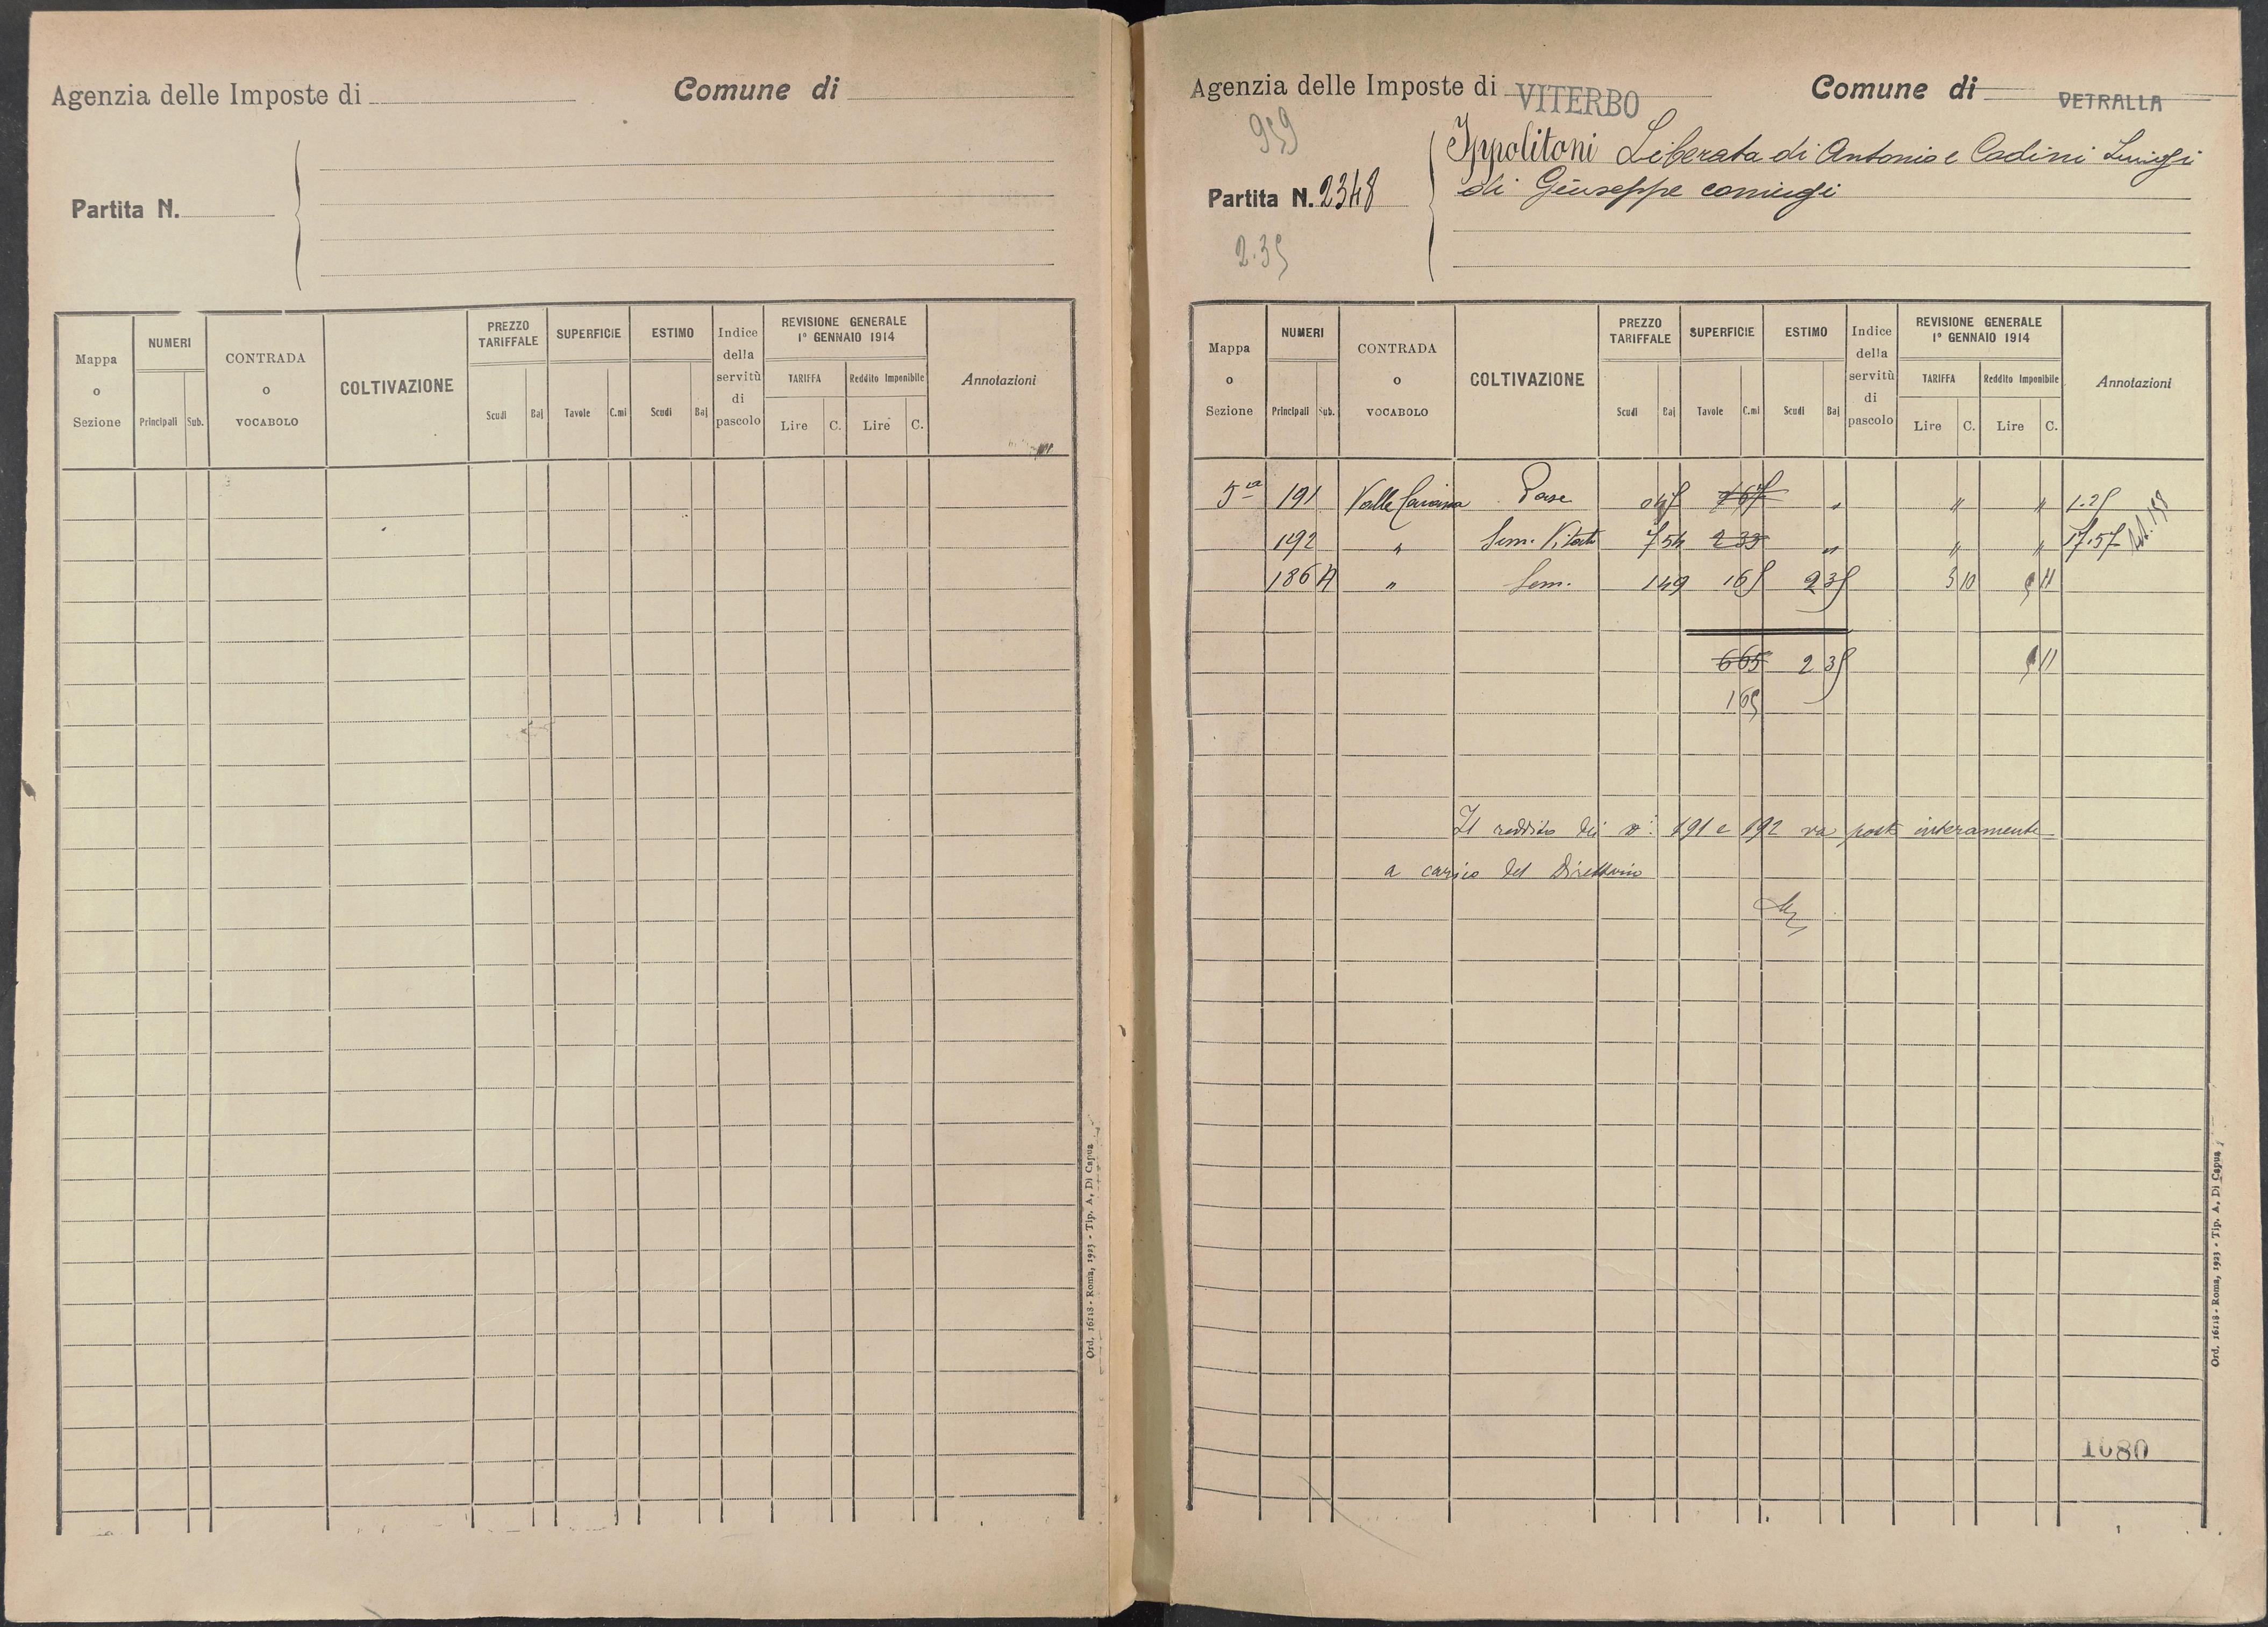 Agenzia delle Imposte di
Comune di
Partita N.
Mappa o Sezione
NUMERI
Principali Sub.
CONTRADA o VOCABOLO
COLTIVAZIONE
PREZZO TARIFFALE
Scudi Baj
SUPERFICIE
Tavole C.mi
ESTIMO
Scudi Baj
Indice della servitù di pascolo
REVISIONE GENERALE
1° GENNAIO 1914
TARIFFA Reddito Imponibile
Lire C. Lire C.
Annotazioni
Ord. 16118 - Roma, 1923 - Tip. A. Di Capua
Agenzia delle Imposte di VITERBO
Comune di VETRALLA
959
Partita N. 2348
2.35
Ippolitoni Liberata di Antonio e Cadini Luigi
di Giuseppe coniugi
Mappa o Sezione
NUMERI
Principali Sub.
CONTRADA o VOCABOLO
COLTIVAZIONE
PREZZO TARIFFALE
Scudi Baj
SUPERFICIE
Tavole C.mi
ESTIMO
Scudi Baj
Indice della servitù di pascolo
REVISIONE GENERALE
1° GENNAIO 1914
TARIFFA Reddito Imponibile
Lire C. Lire C.
Annotazioni
5ª 191 Valle Pasc " " " 1.25
192 " Sem. Vitato 7 54 2 33 " " " 17.57
186 A " Sem. 1 49 1 65 2 35 3 10 5 11
6 65 2 35 5 11
1 65
Il reddito dei ni 191 e 192 va posto interamente
a carico del Direttario
1080
Ord. 16118 - Roma, 1923 - Tip. A. Di Capua